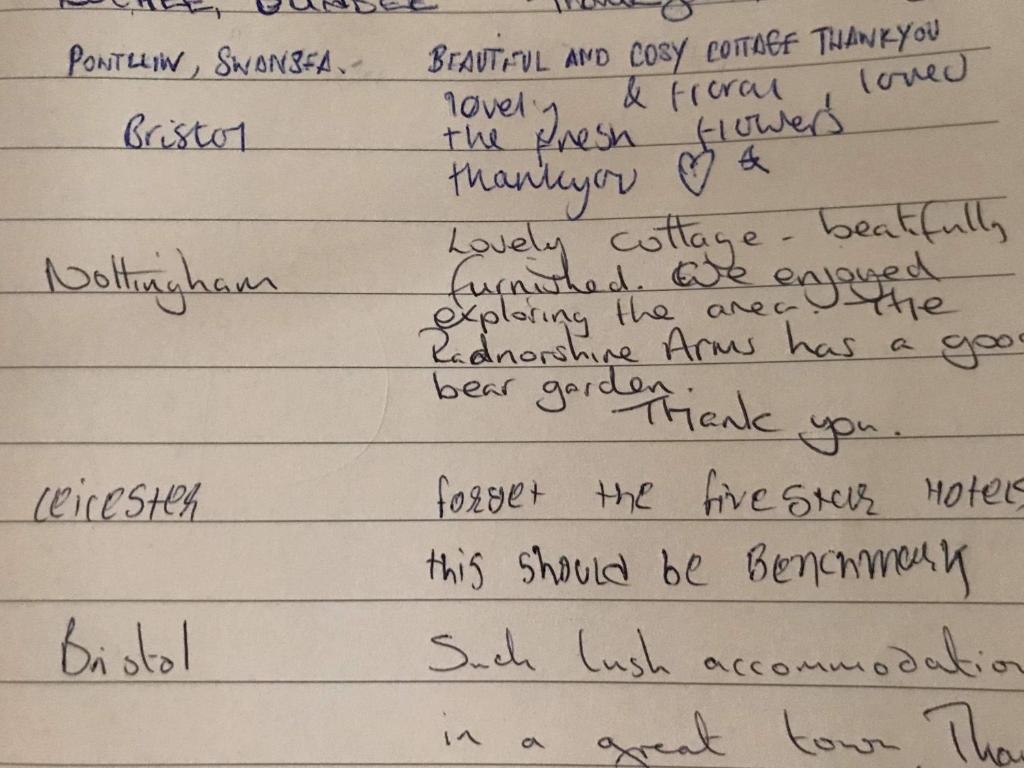 LOCHEE, DUNDEE
PONTLLIW, SWANSEA. BEAUTIFUL AND COSY COTTAGE THANKYOU
lovely & floral, loved
Bristol the fresh flowers
thankyou ♡ &
Lovely cottage - beatifully
Nottingham furnished. We enjoyed
exploring the area. The
Radnorshire Arms has a goo
bear garden.
Thank you.
Leicester forget the five star Hotels
this should be Benchmark
Bristol Such lush accommodation
in a great town Tha